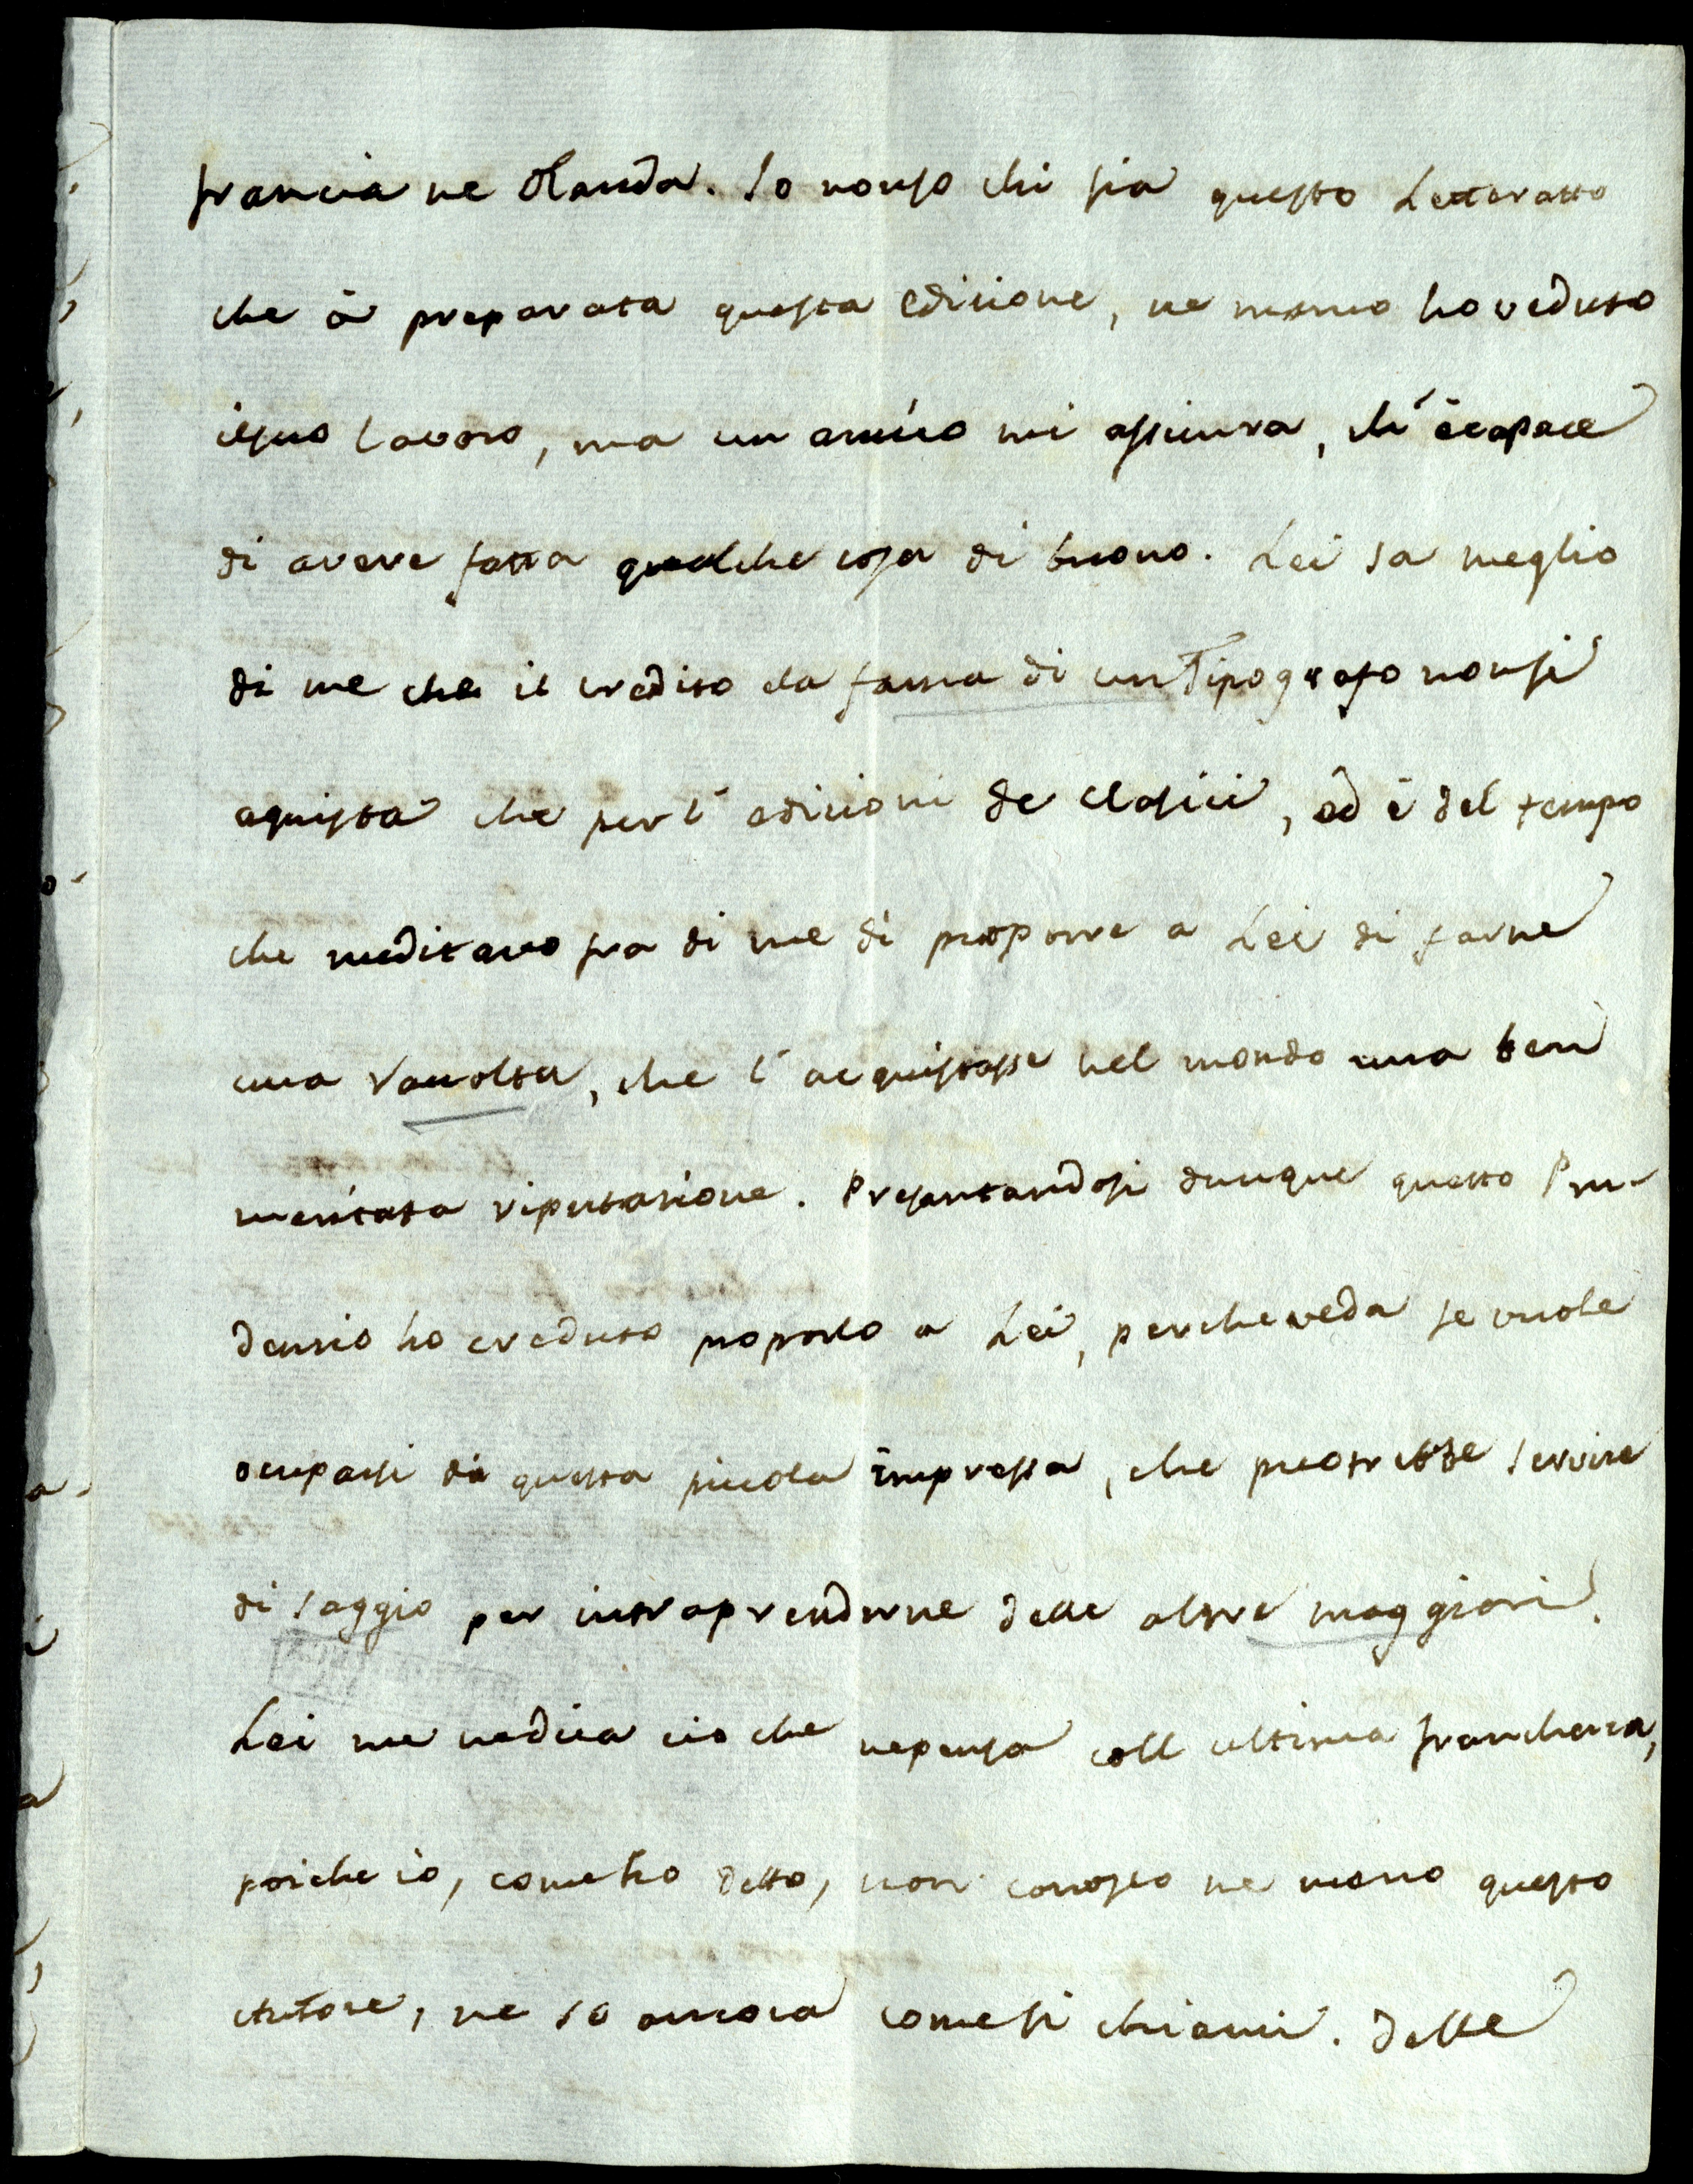 francia ne Olanda. Io nonso chi sia questo Letteratto
che à preparata questa edizione, ne meno ho veduto
ilsuo lavoro, ma un amico mi assicura, ch'è capace
di avere fatta qualche cosa di buono. Lei sa meglio
di me che il credito ela fama di un Tipografo nonsi
aquista che per l'edizioni de Clasici, ed è del tempo
che meditavo fra di me di proporre a Lei di farne
una racolta, che l'acquistasse nel mondo una ben
meritata riputazione. Presentandosi dunque questo Pru-
denzio ho creduto proporlo a Lei, percheveda se vuole
ocuparsi di questa picola impressa, che puotrebbe servire
di saggio per intraprenderne delle altre maggiori.
Lei me nedica cio che nepensa coll ultima franchezza,
poiche io, come ho detto, non conosco ne meno questo
Autore, ne so ancora comesi chiami. Delle